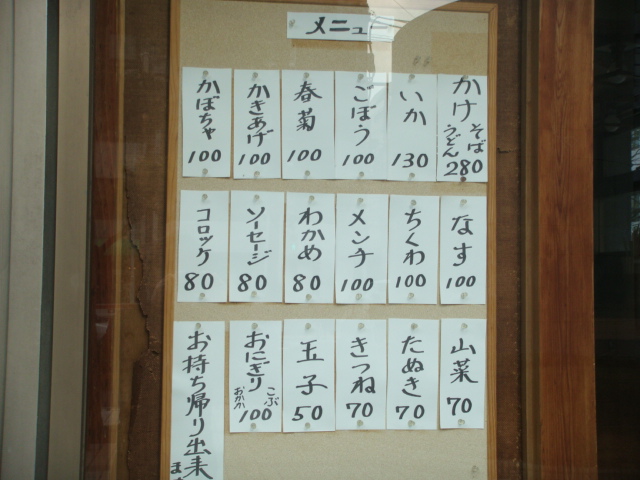 メニュー
かけ そば うどん 280
いか 130
ごぼう 100
春菊 100
かきあげ 100
かぼちゃ 100
なす 100
ちくわ 100
メンチ 100
わかめ 80
ソーセージ 80
コロッケ 80
山菜 70
たぬき 70
きつね 70
玉子 50
おにぎり こぶ おかか 100
お持ち帰り出来ま